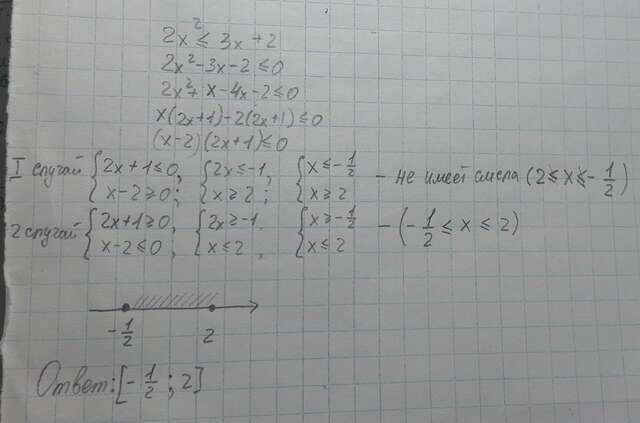 2x² ≤ 3x + 2
2x² - 3x - 2 ≤ 0
2x² + x - 4x - 2 ≤ 0
x(2x+1) - 2(2x+1) ≤ 0
(x-2)(2x+1) ≤ 0
I случай { 2x+1 ≤ 0, { 2x ≤ -1, { x ≤ -1/2 - не имеет смысла (2 ≤ x ≤ -1/2)
x-2 ≥ 0; x ≥ 2; x ≥ 2
2 случай { 2x+1 ≥ 0, { 2x ≥ -1. { x ≥ -1/2 - (-1/2 ≤ x ≤ 2)
x-2 ≤ 0; x ≤ 2, x ≤ 2
-1/2 2
Ответ: [-1/2 ; 2]